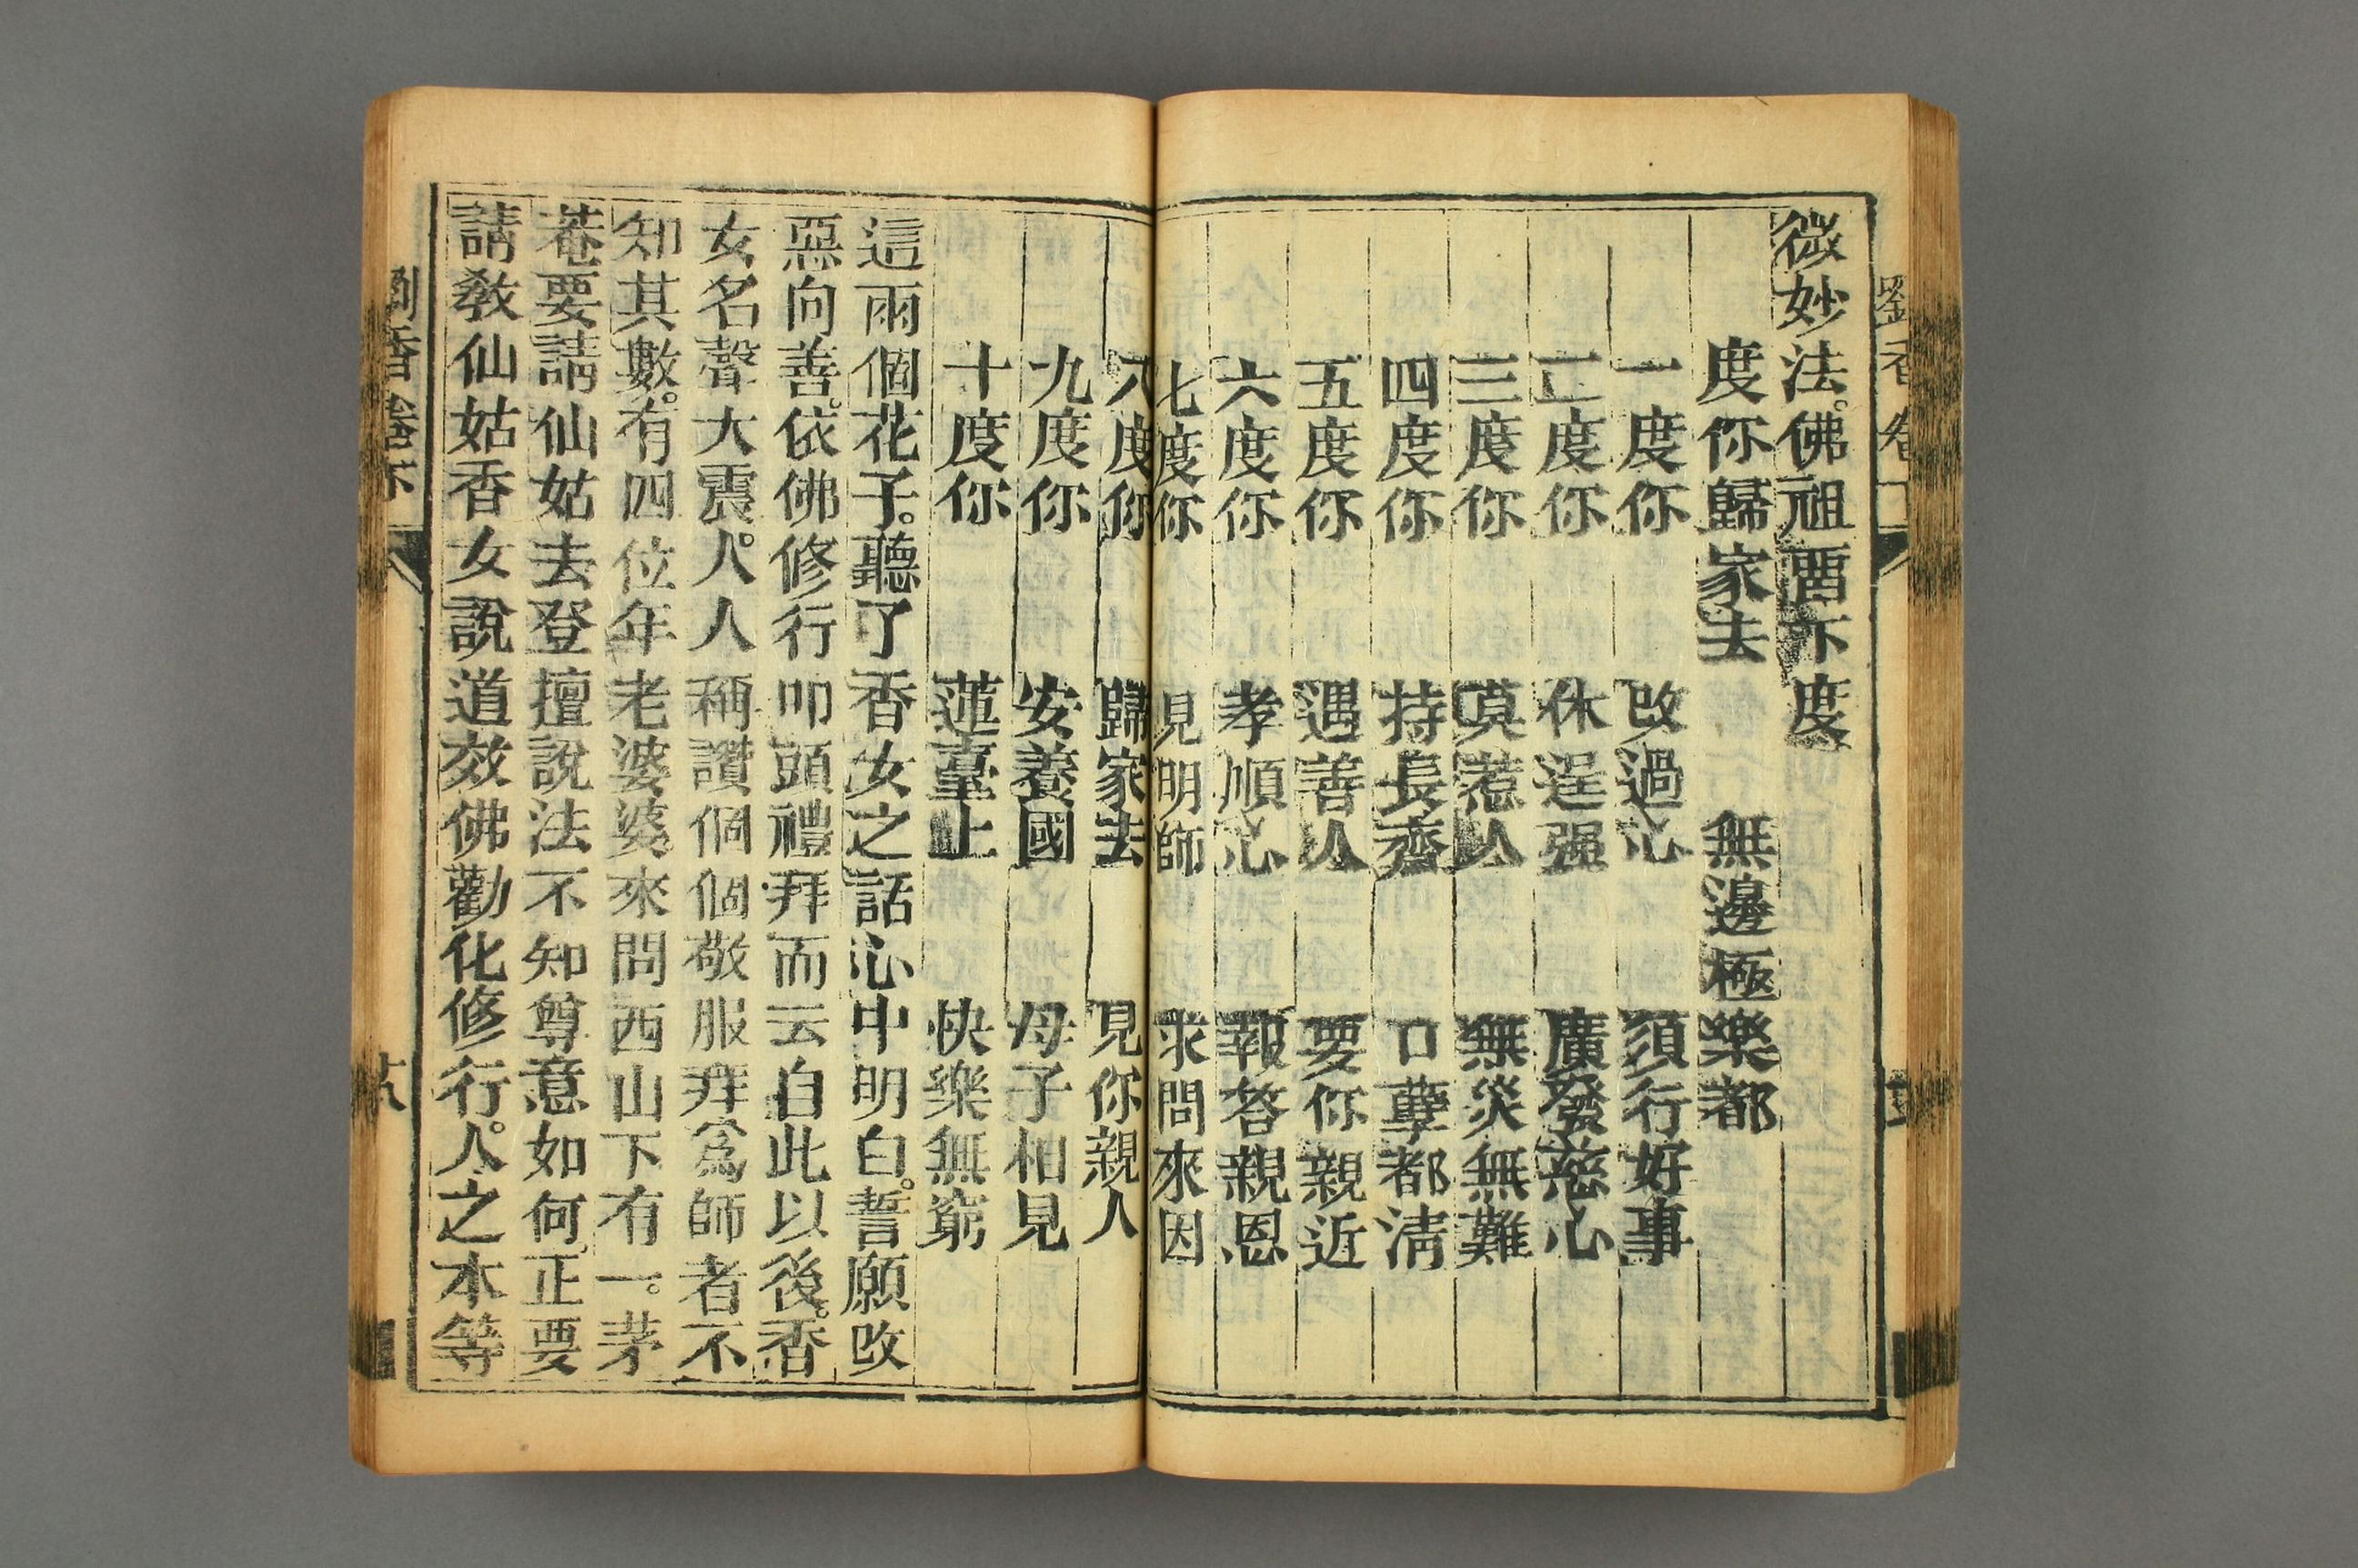 微妙法。佛祖畱下度
度你歸家去 無邊極樂都
一度你 改過心 須行好事
二度你 休逞强 廣發慈心
三度你 莫惹人 無災無難
四度你 持長齊 口孽都淸
五度你 遇善人 要你親近
六度你 孝順心 報答親恩
七度你 見明師 求問來因
八度你 歸家去 見你親人
九度你 安養國 母子相見
十度你 蓮臺上 快樂無窮
這兩個花子。聽了香女之話心中明白。誓願改
惡向善。依佛修行叩頭禮拜而云自此以後。香
女名聲大震。人人稱讚個個敬服拜爲師者不
知其數。有四位年老婆婆來問西山下有一。茅
菴要請仙姑去登擅說法不知尊意如何。正要
請敎仙姑香女說道效佛勸化修行。人之本等
劉香卷下